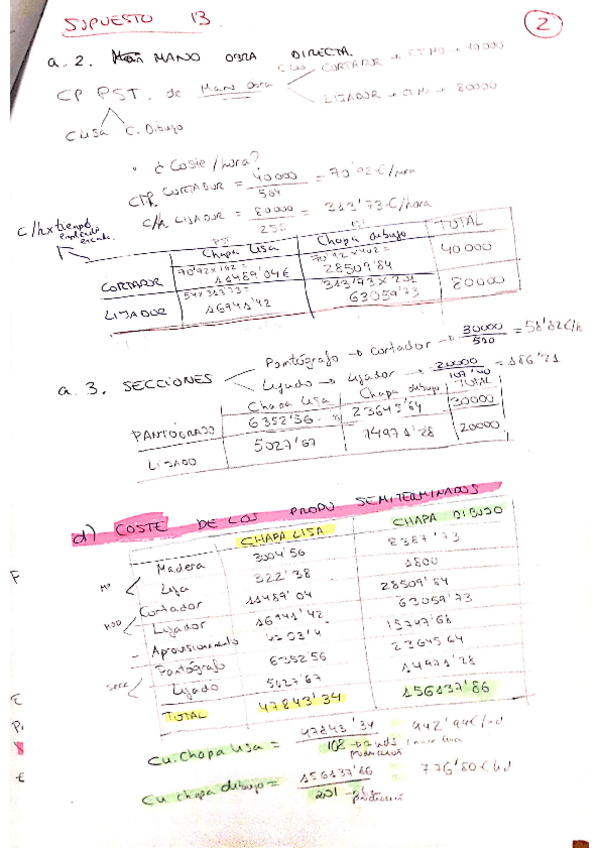 SUPUESTO 13.
2
a.2. MANO OBRA DIRECTA.
CORTADOR → CTMO → 40000
CP PST. de Mano Obra
LIJADOR → CTM → 80000
C Lisa C. Dibujo
• ¿Coste/hora?
CORTADOR = 40000 / 564 = 70'92 €/hora
c/h LIJADOR = 80000 / 255 = 313'73 €/hora
c/h x tiempo
Chapa Lisa Chapa dibujo TOTAL
CORTADOR 70'92 x 162 = 11489'04 € 70'92 x 402 = 28509'84 40000
LIJADOR 54 x 313'73 = 16941'42 313'73 x 201 63059'73 80000
a.3. SECCIONES
Pantógrafo → Cortador → 30000 / 510 = 58'82 €/h
Lijado → Lijador → 20000 / 107'40 = 186'21
Chapa Lisa Chapa dibujo TOTAL
PANTÓGRAFO 6352'56 23645'64 30000
LIJADO 5027'67 14971'28 20000
d) COSTE DE LOS PRODU SEMITERMINADOS
CHAPA LISA CHAPA DIBUJO
MP
Madera 3004'56 8387'73
Lija 322'38 1800
MOD
Cortador 11489'04 28509'84
Lijador 16941'42 63059'73
Aprovisionamiento 15747'68
SECC
Pantógrafo 6352'56 23645'64
Lijado 5027'67 14971'28
TOTAL 47843'34 156137'86
Cu. Chapa Lisa = 47843'34 / 108 → uds = 442'99 €/ud
producción
Cu chapa dibujo = 156137'86 / 201 → = 776'80 €/ud
producción